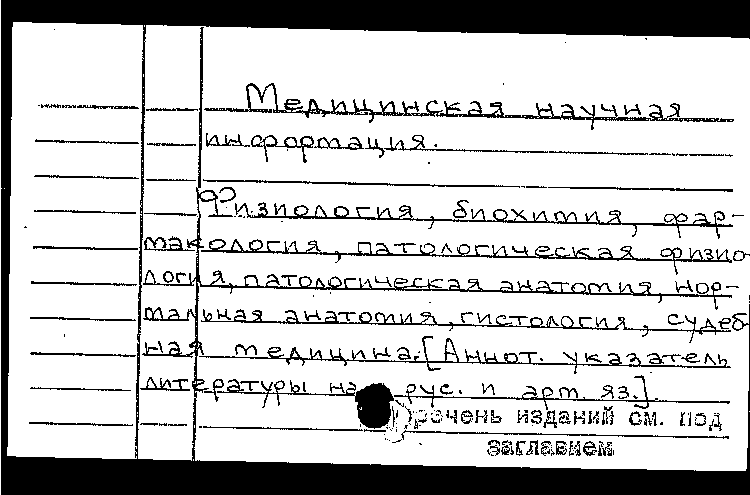 Медицинская научная
информация.
Физиология, биохимия, фар-
макология, патологическая физио-
логия, патологическая анатомия, нор-
мальная анатомия, гистология, судеб-
ная медицина. [Аннот. указатель
литературы на рус. и арм. яз.].
см. под
изданий
заглавием